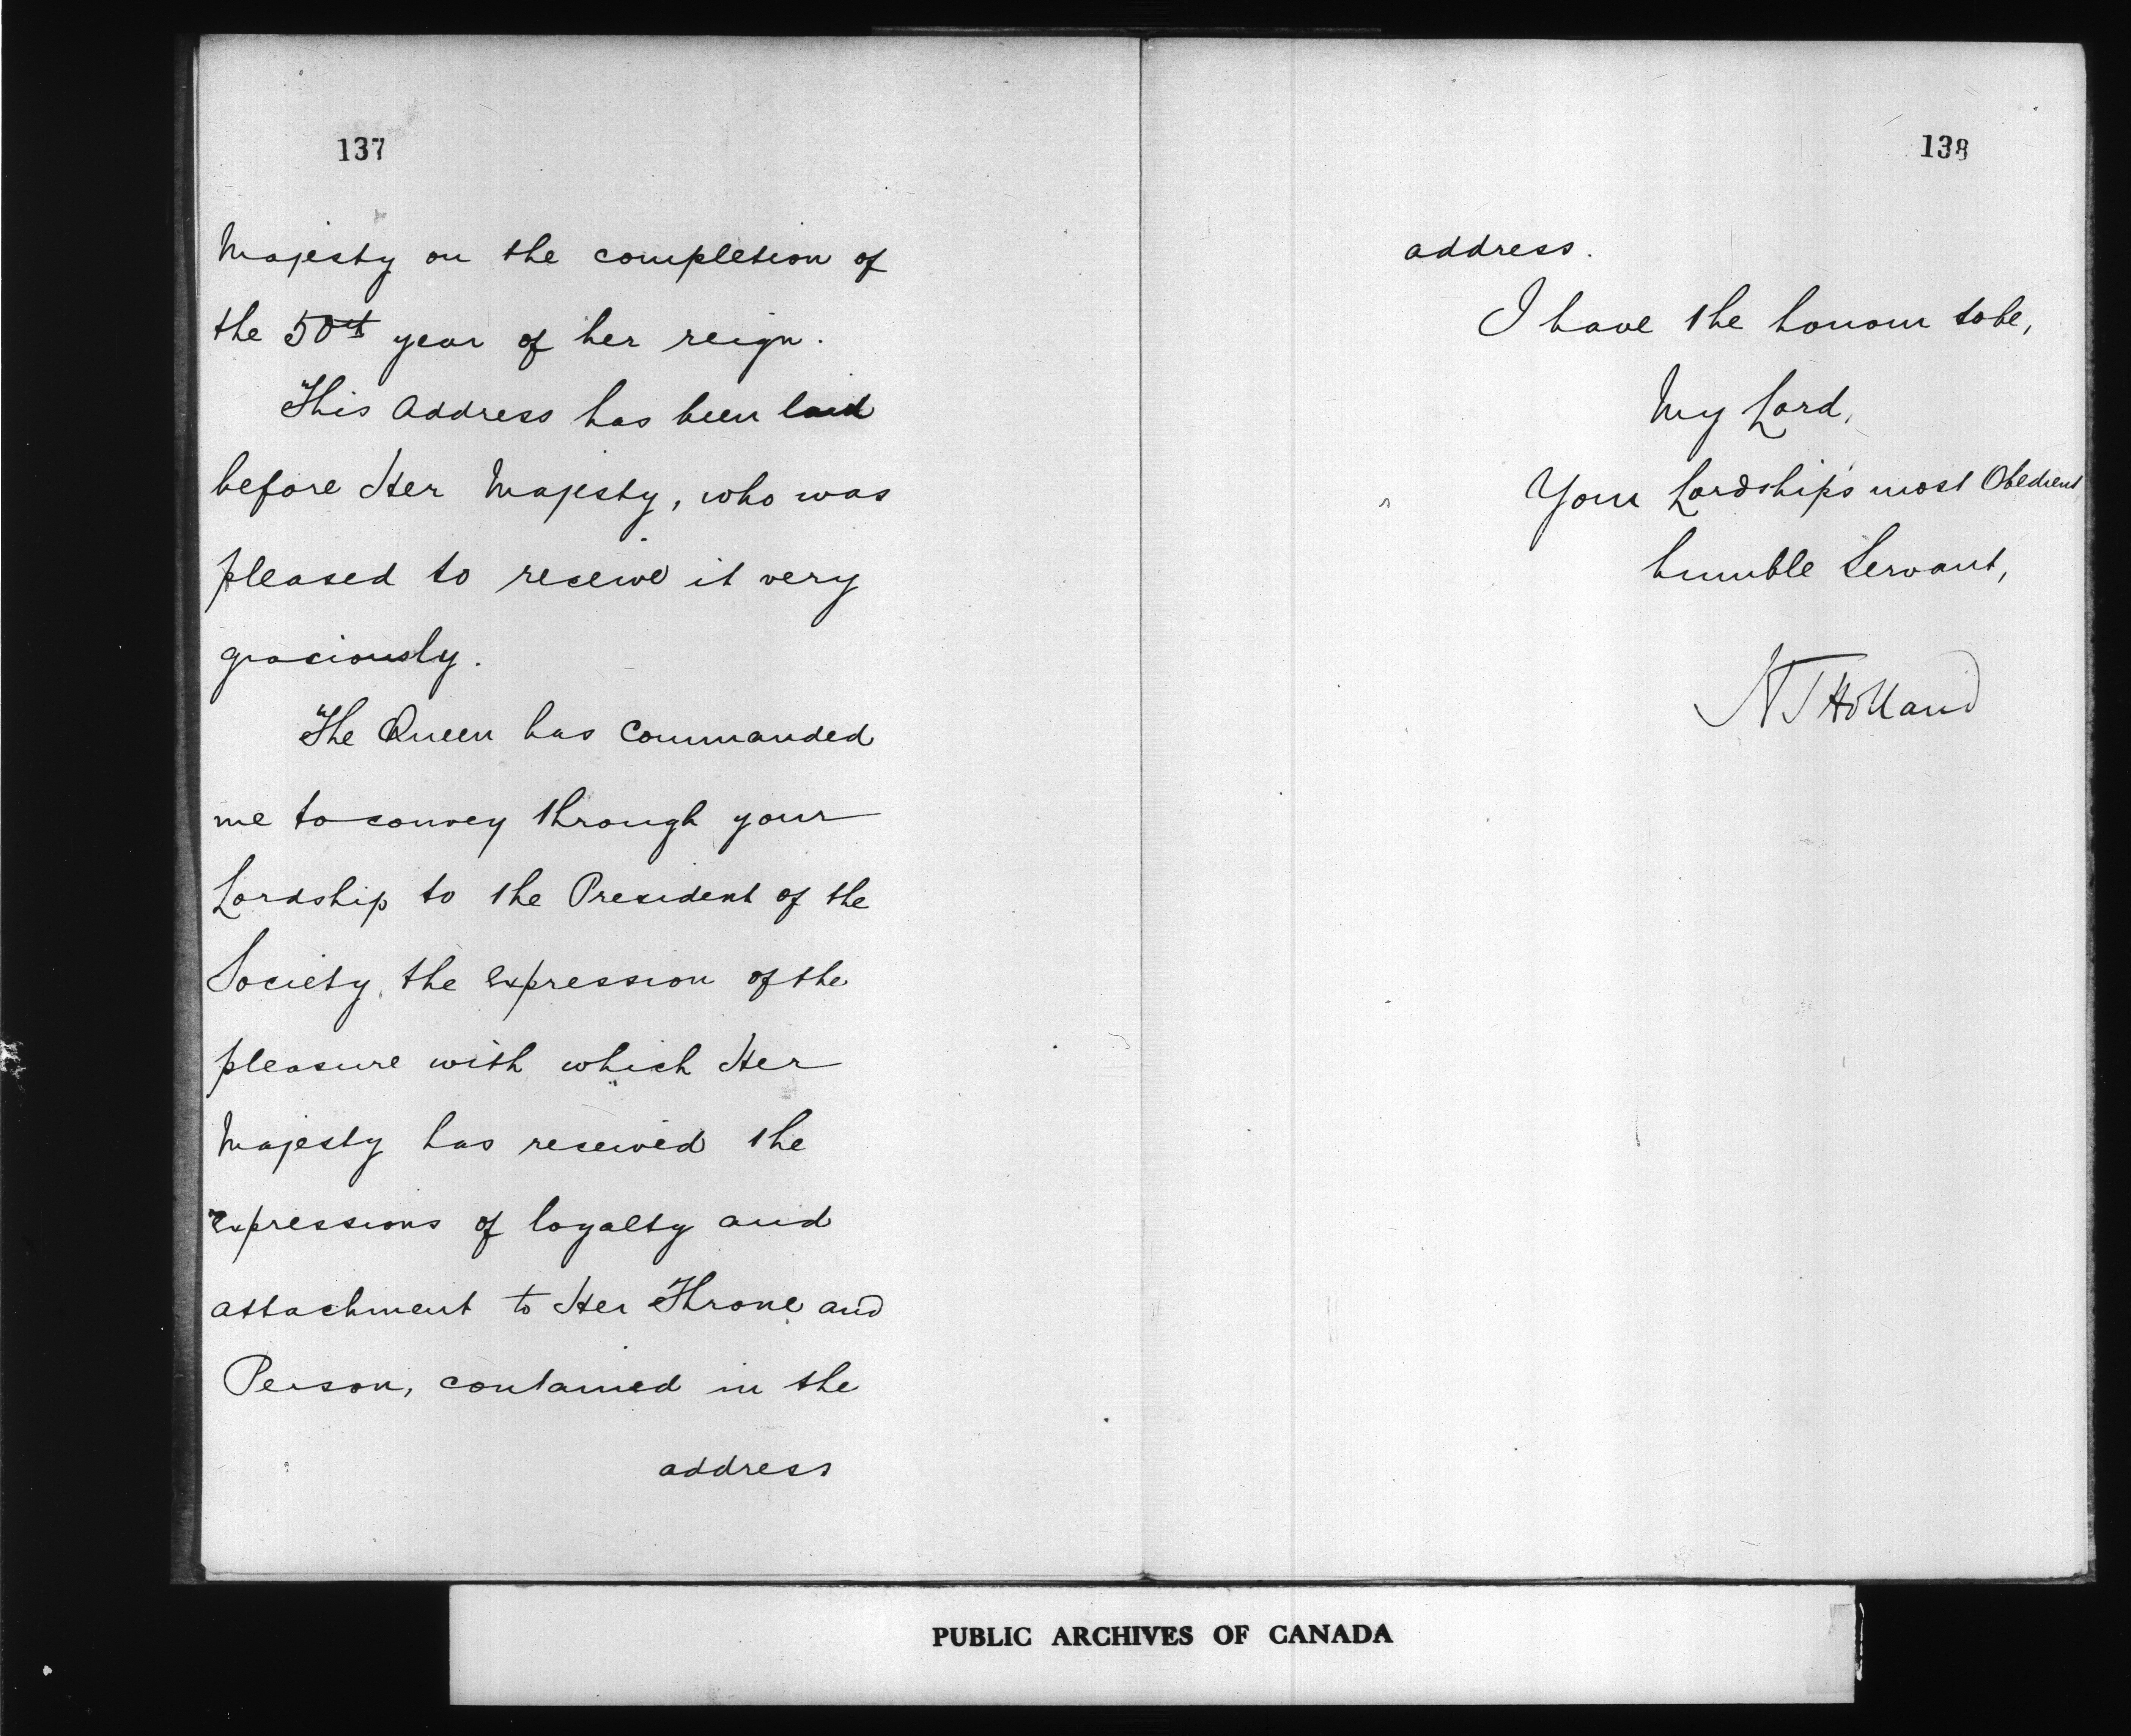 137
Majesty on the completion of
the 50th year of her reign.
This Address has been laid
before Her Majesty, who was
pleased to receive it very
graciously.
The Queen has commanded
me to convey through your
Lordship to the President of the
Society, the expression of the
pleasure with which Her
Majesty has received the
expressions of loyalty and
attachment to Her Throne and
Person, contained in the
address
138
address.
I have the honour to be,
My Lord,
Your Lordship's most Obedient
humble Servant,
H T Holland
PUBLIC ARCHIVES OF CANADA